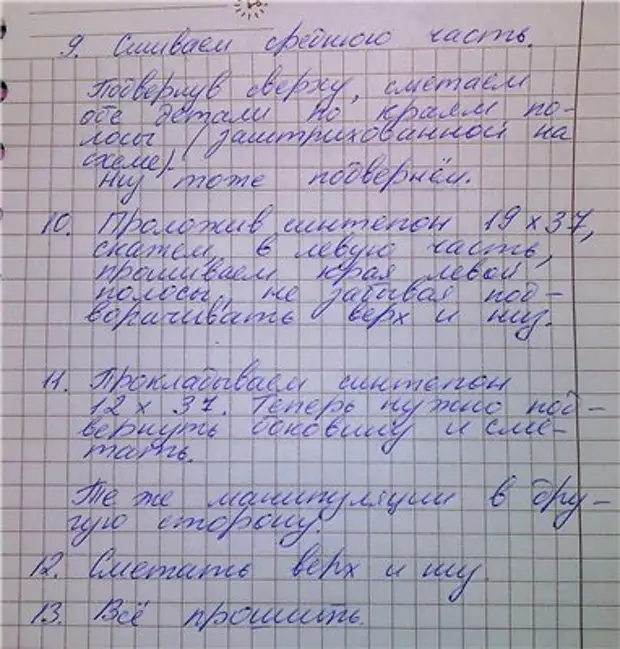 9. Сшиваем среднюю часть.
Подвернув сверху, сметаем
обе детали по краям по-
лосы (заштрихованной на
схеме).
Низ тоже подвернём.
10. Проложив синтепон 19 x 37,
скажем, в левую часть,
прошиваем края левой
полосы, не забывая под-
ворачивать верх и низ.
11. Прокладываем синтепон
12 x 37. Теперь нужно под-
вернуть боковину и сме-
тать.
Те же манипуляции в дру-
гую сторону
12. Сметать верх и низ.
13. Всё прошить.